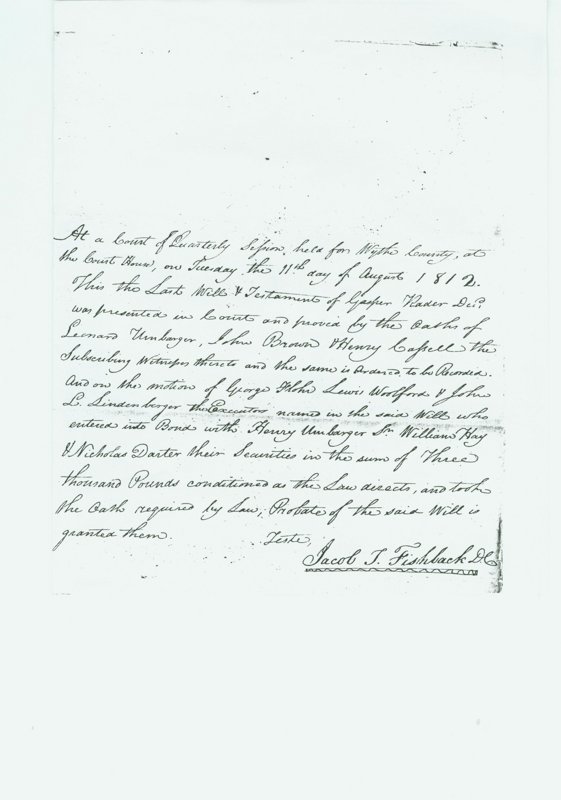 At a Court of Quarterly Session, held for Wythe County, at
the Court House, on Tuesday the 11th day of August 1812.
This the Last Will & Testament of Gasper Rader Decd.
was presented in Court and proved by the Oaths of
Leonard Umbarger, John Brown & Henry Cassell the
Subscribing Witnesses thereto and the same is Ordered to be Recorded.
And on the motion of George Flohr Lewis Woolford & John
L. Lindenberger the Executors named in the said Will who
entered into Bond with Henry Umbarger Sr. William Hay
& Nicholas Darter their Securities in the sum of Three
thousand Pounds conditioned as the Law directs, and took
the Oath required by Law, Probate of the said Will is
granted them. Teste,
Jacob T. Fishback DC